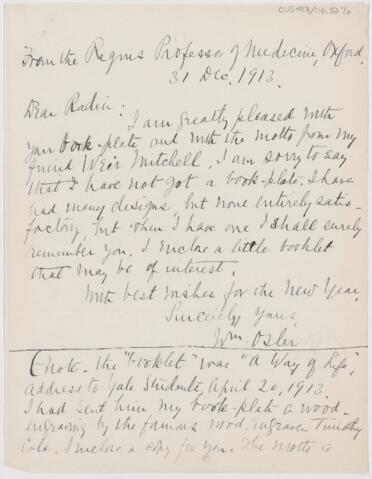 CUS417/116.52
From the Regius Professor of Medicine, Oxford.
31 Dec. 1913.
Dear Radin:
I am greatly pleased with
your book-plate and with the motto from my
friend Weir Mitchell. I am sorry to say
that I have not got a book-plate. I have
had many designs, but none entirely satis-
factory, but when I have one I shall surely
remember you. I enclose a little booklet
that may be of interest.
With best wishes for the New Year,
Sincerely yours,
Wm. Osler.
(Note. The "booklet" was "A Way of Life",
address to Yale Students, April 20, 1913.
I had sent him my book-plate a wood-
engraving by the famous wood-engraver Timothy
Cole. I enclose a copy for you. The motto is